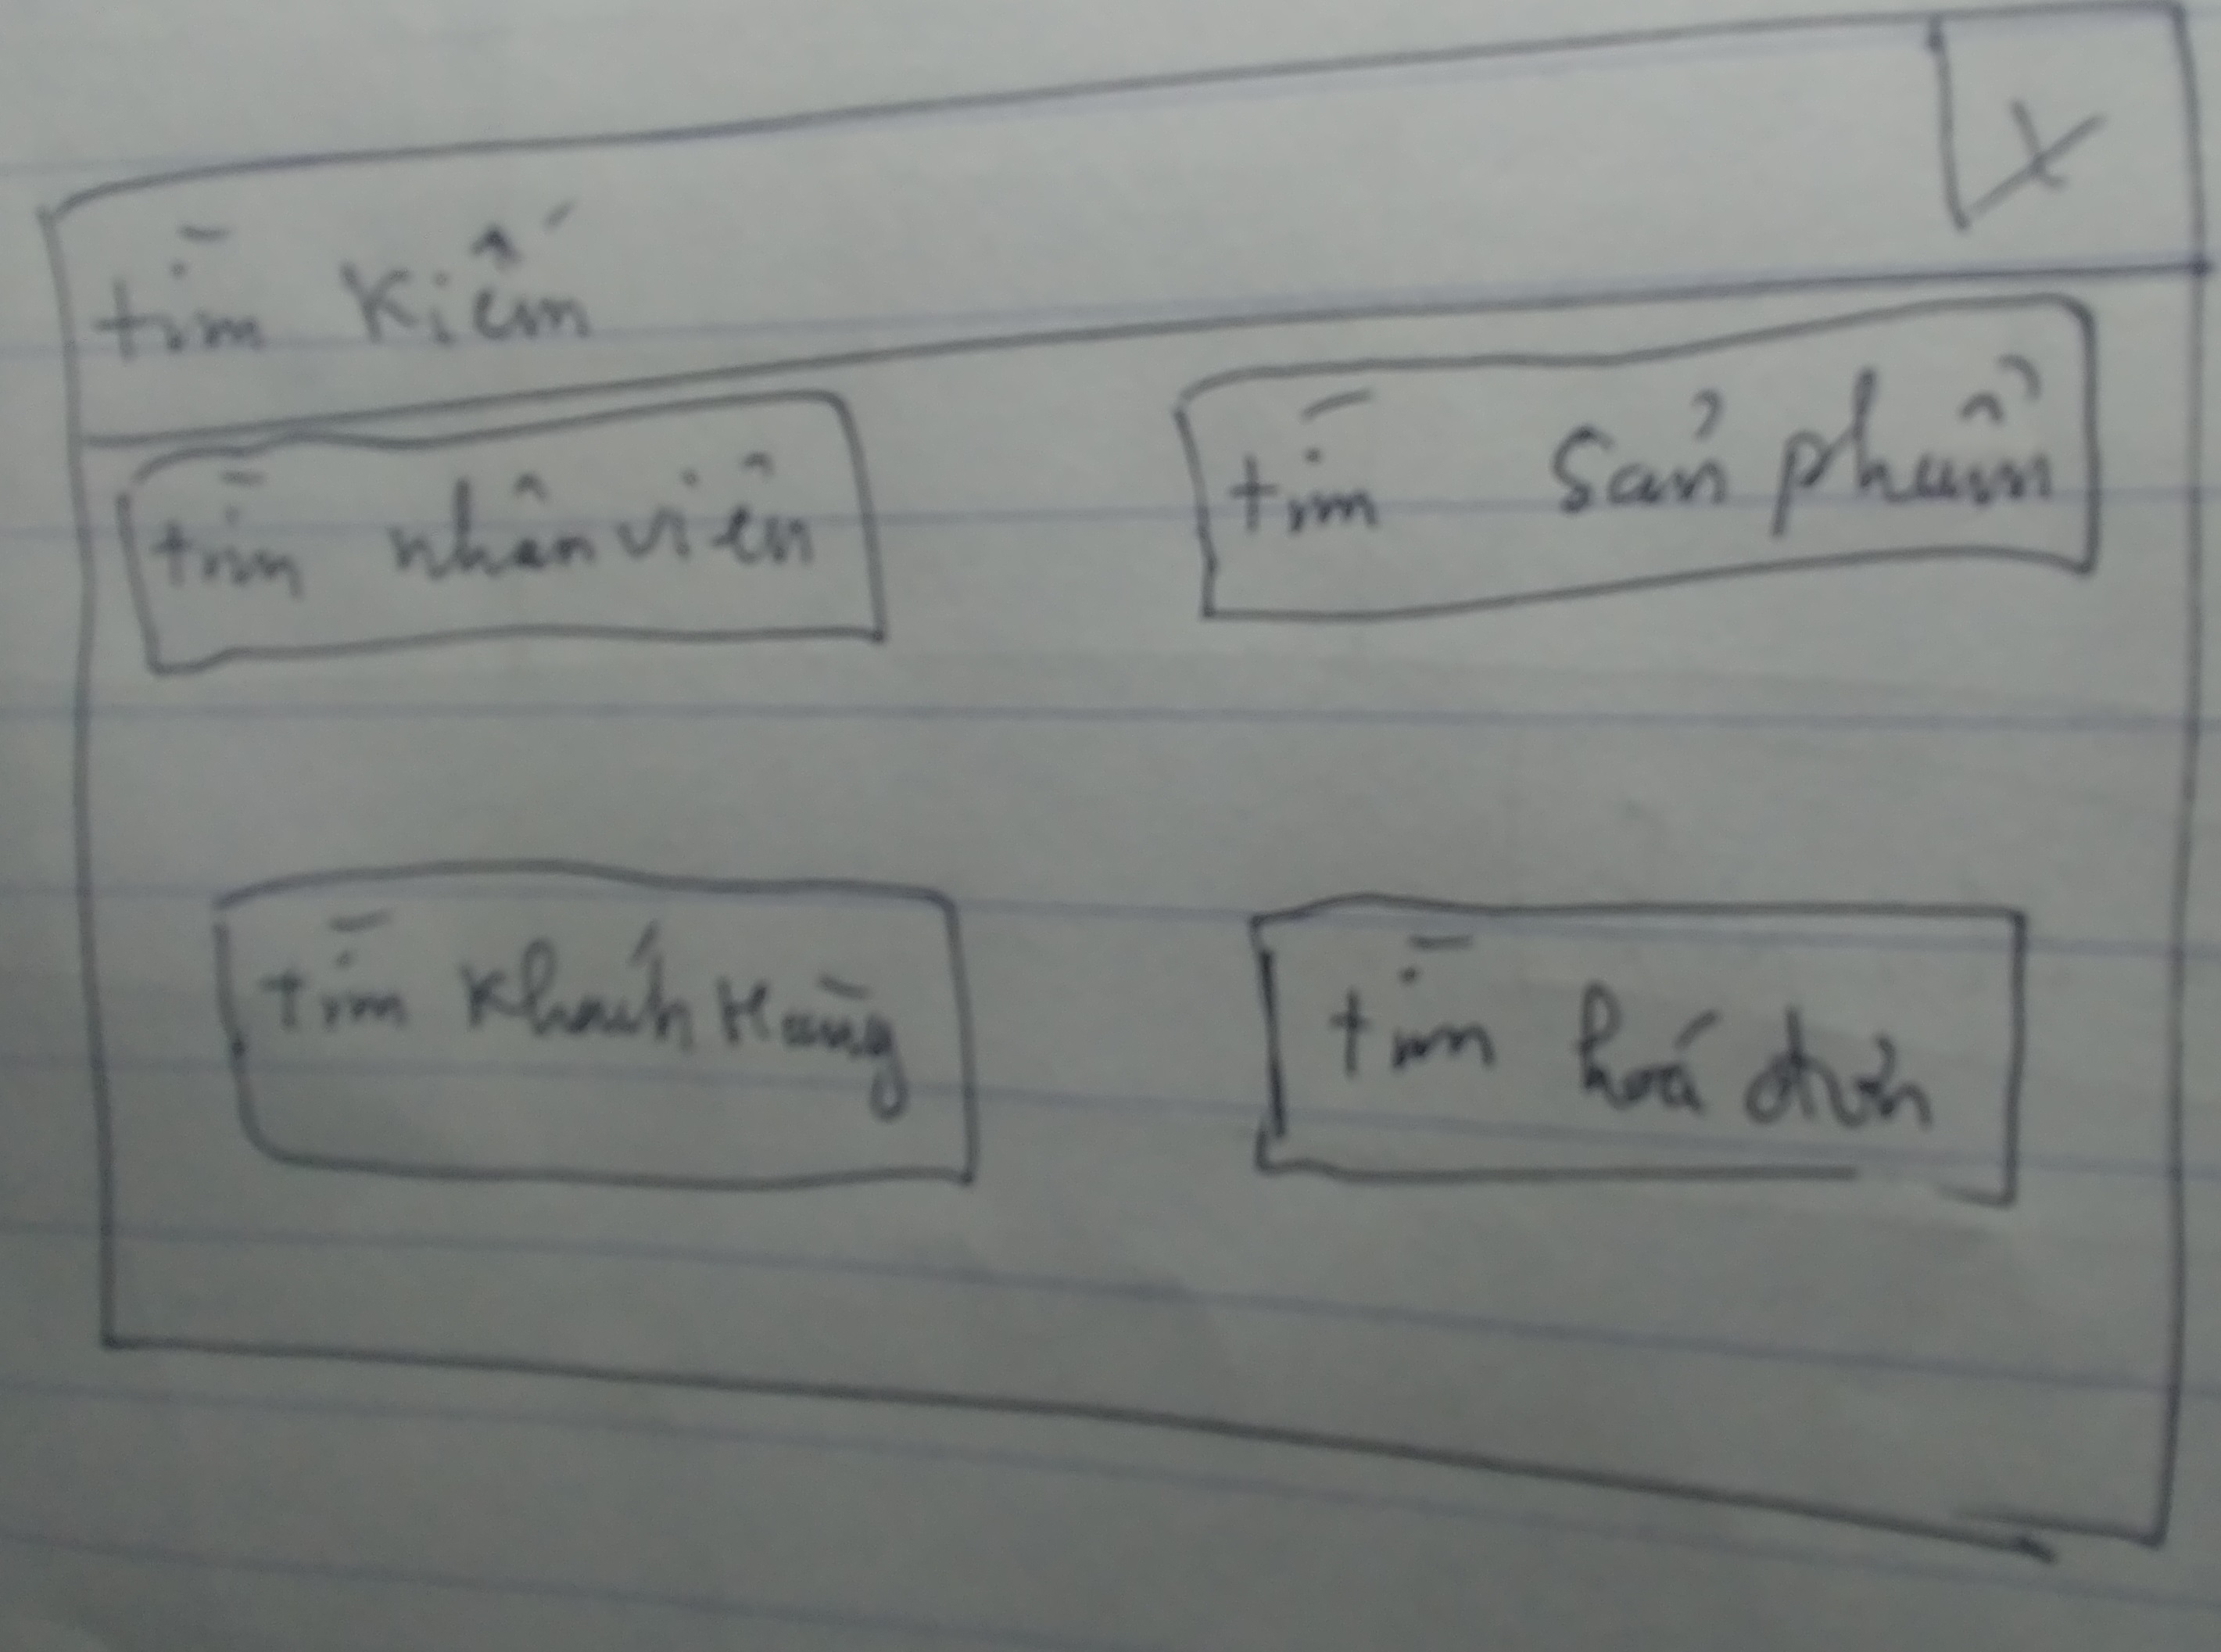 tìm kiếm
X
tìm nhân viên
tìm sản phẩm
tìm khách Hàng
tìm hoá đơn